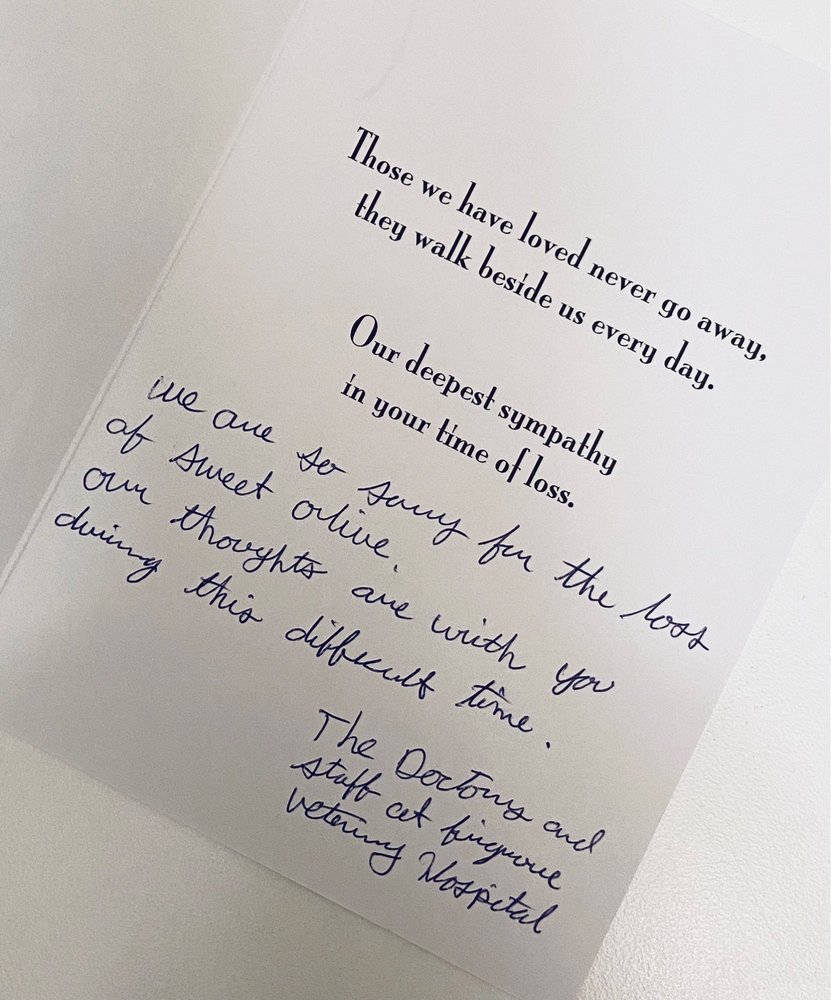 Those we have loved never go away,
they walk beside us every day.
Our deepest sympathy
in your time of loss.
we are so sorry for the loss
of sweet olive.
our thoughts are with you
during this difficult time.
The Doctors and
staff at
Hospital